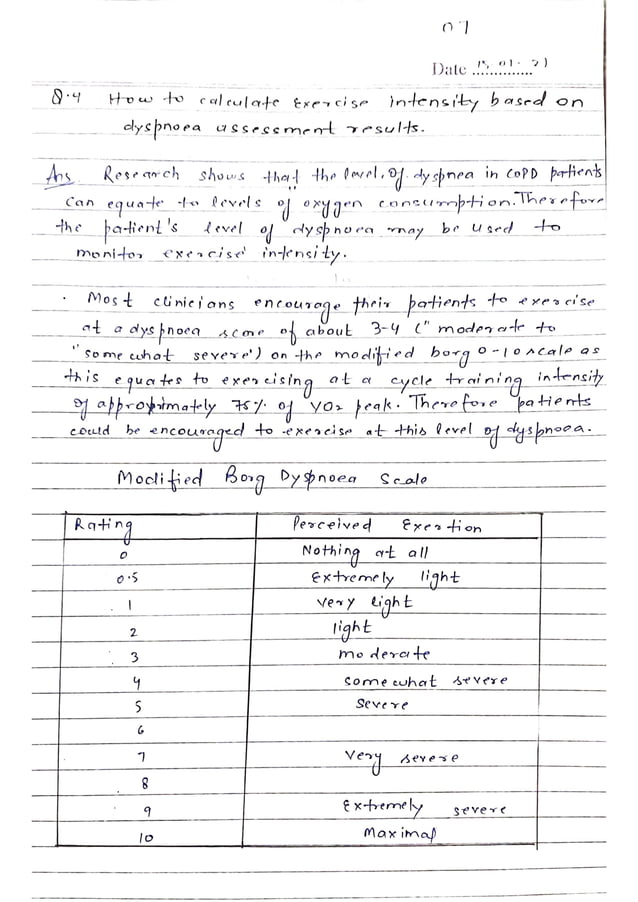 07
Date 15.01.21
Q.4 How to calculate exercise intensity based on
dyspnoea assessment results.
Ans Research shows that the level of dyspnea in COPD patients
can equate to levels of oxygen consumption. Therefore
the patient's level of dyspnoea may be used to
monitor exercise intensity.
. Most clinicians encourage their patients to exercise
at a dyspnoea score of about 3-4 ("moderate to
"some what severe") on the modified borg 0-10 scale as
this equates to exercising at a cycle training intensity
of approximately 75% of VO2 peak. Therefore patients
could be encouraged to exercise at this level of dyspnoea.
Modified Borg Dyspnoea Scale
Rating Perceived Exertion
0 Nothing at all
0.5 Extremely light
1 very light
2 light
3 moderate
4 some what severe
5 severe
6
7 very severe
8
9 Extremely severe
10 Maximal